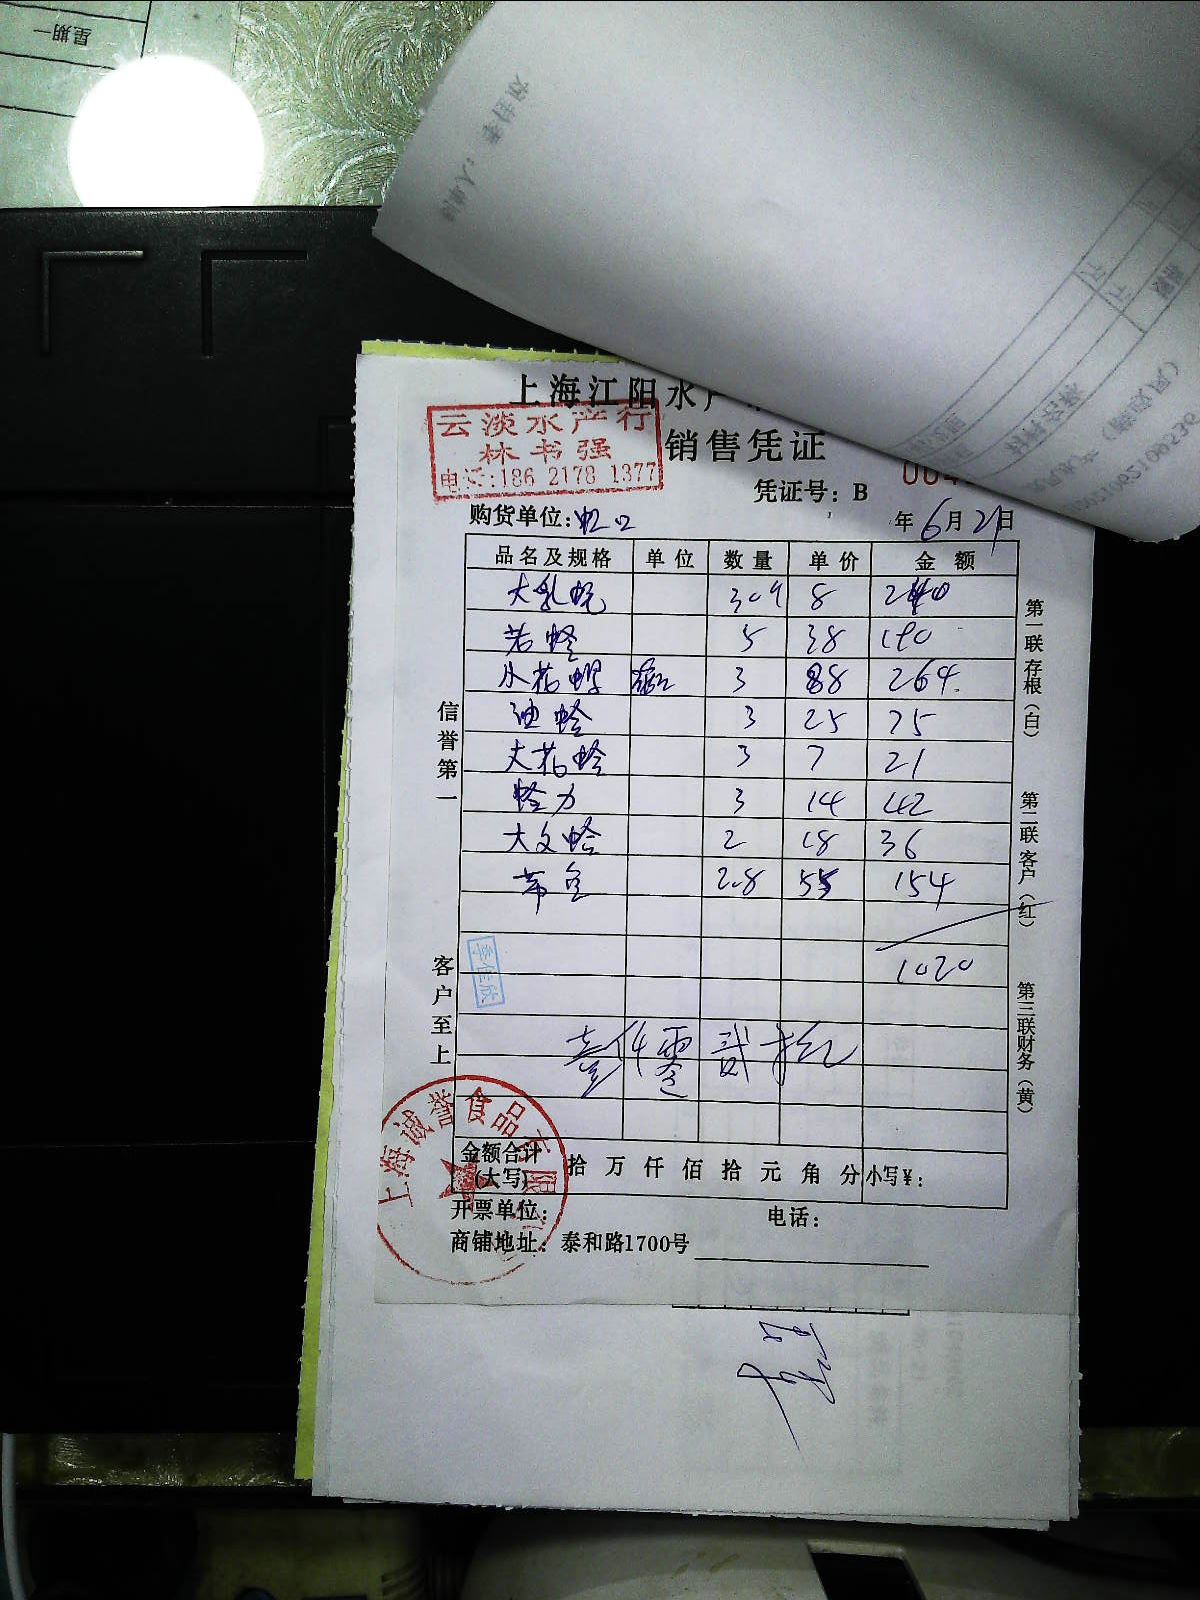 星期一
上海江阳水产
云淡水产行
林书强
电话:186 2178 1377
销售凭证
凭证号：B
购货单位:虹口
年6月21日
品名及规格 单位 数量 单价 金额
大乳蚬 30个 8 240
5 38 190
小花螺 3 88 264
迪蛏 3 25 75
大花蛤 3 7 21
3 14 42
大文蛤 2 18 36
带鱼 2.8 55 154
1020
壹仟零贰拾
李佳欣
信誉第一
客户至上
第一联存根（白）
第二联客户（红）
第三联财务（黄）
上海诚誉食品有限公司
金额合计
(大写) 拾 万 仟 佰 拾 元 角 分 小写¥：
开票单位： 电话：
商铺地址：泰和路1700号